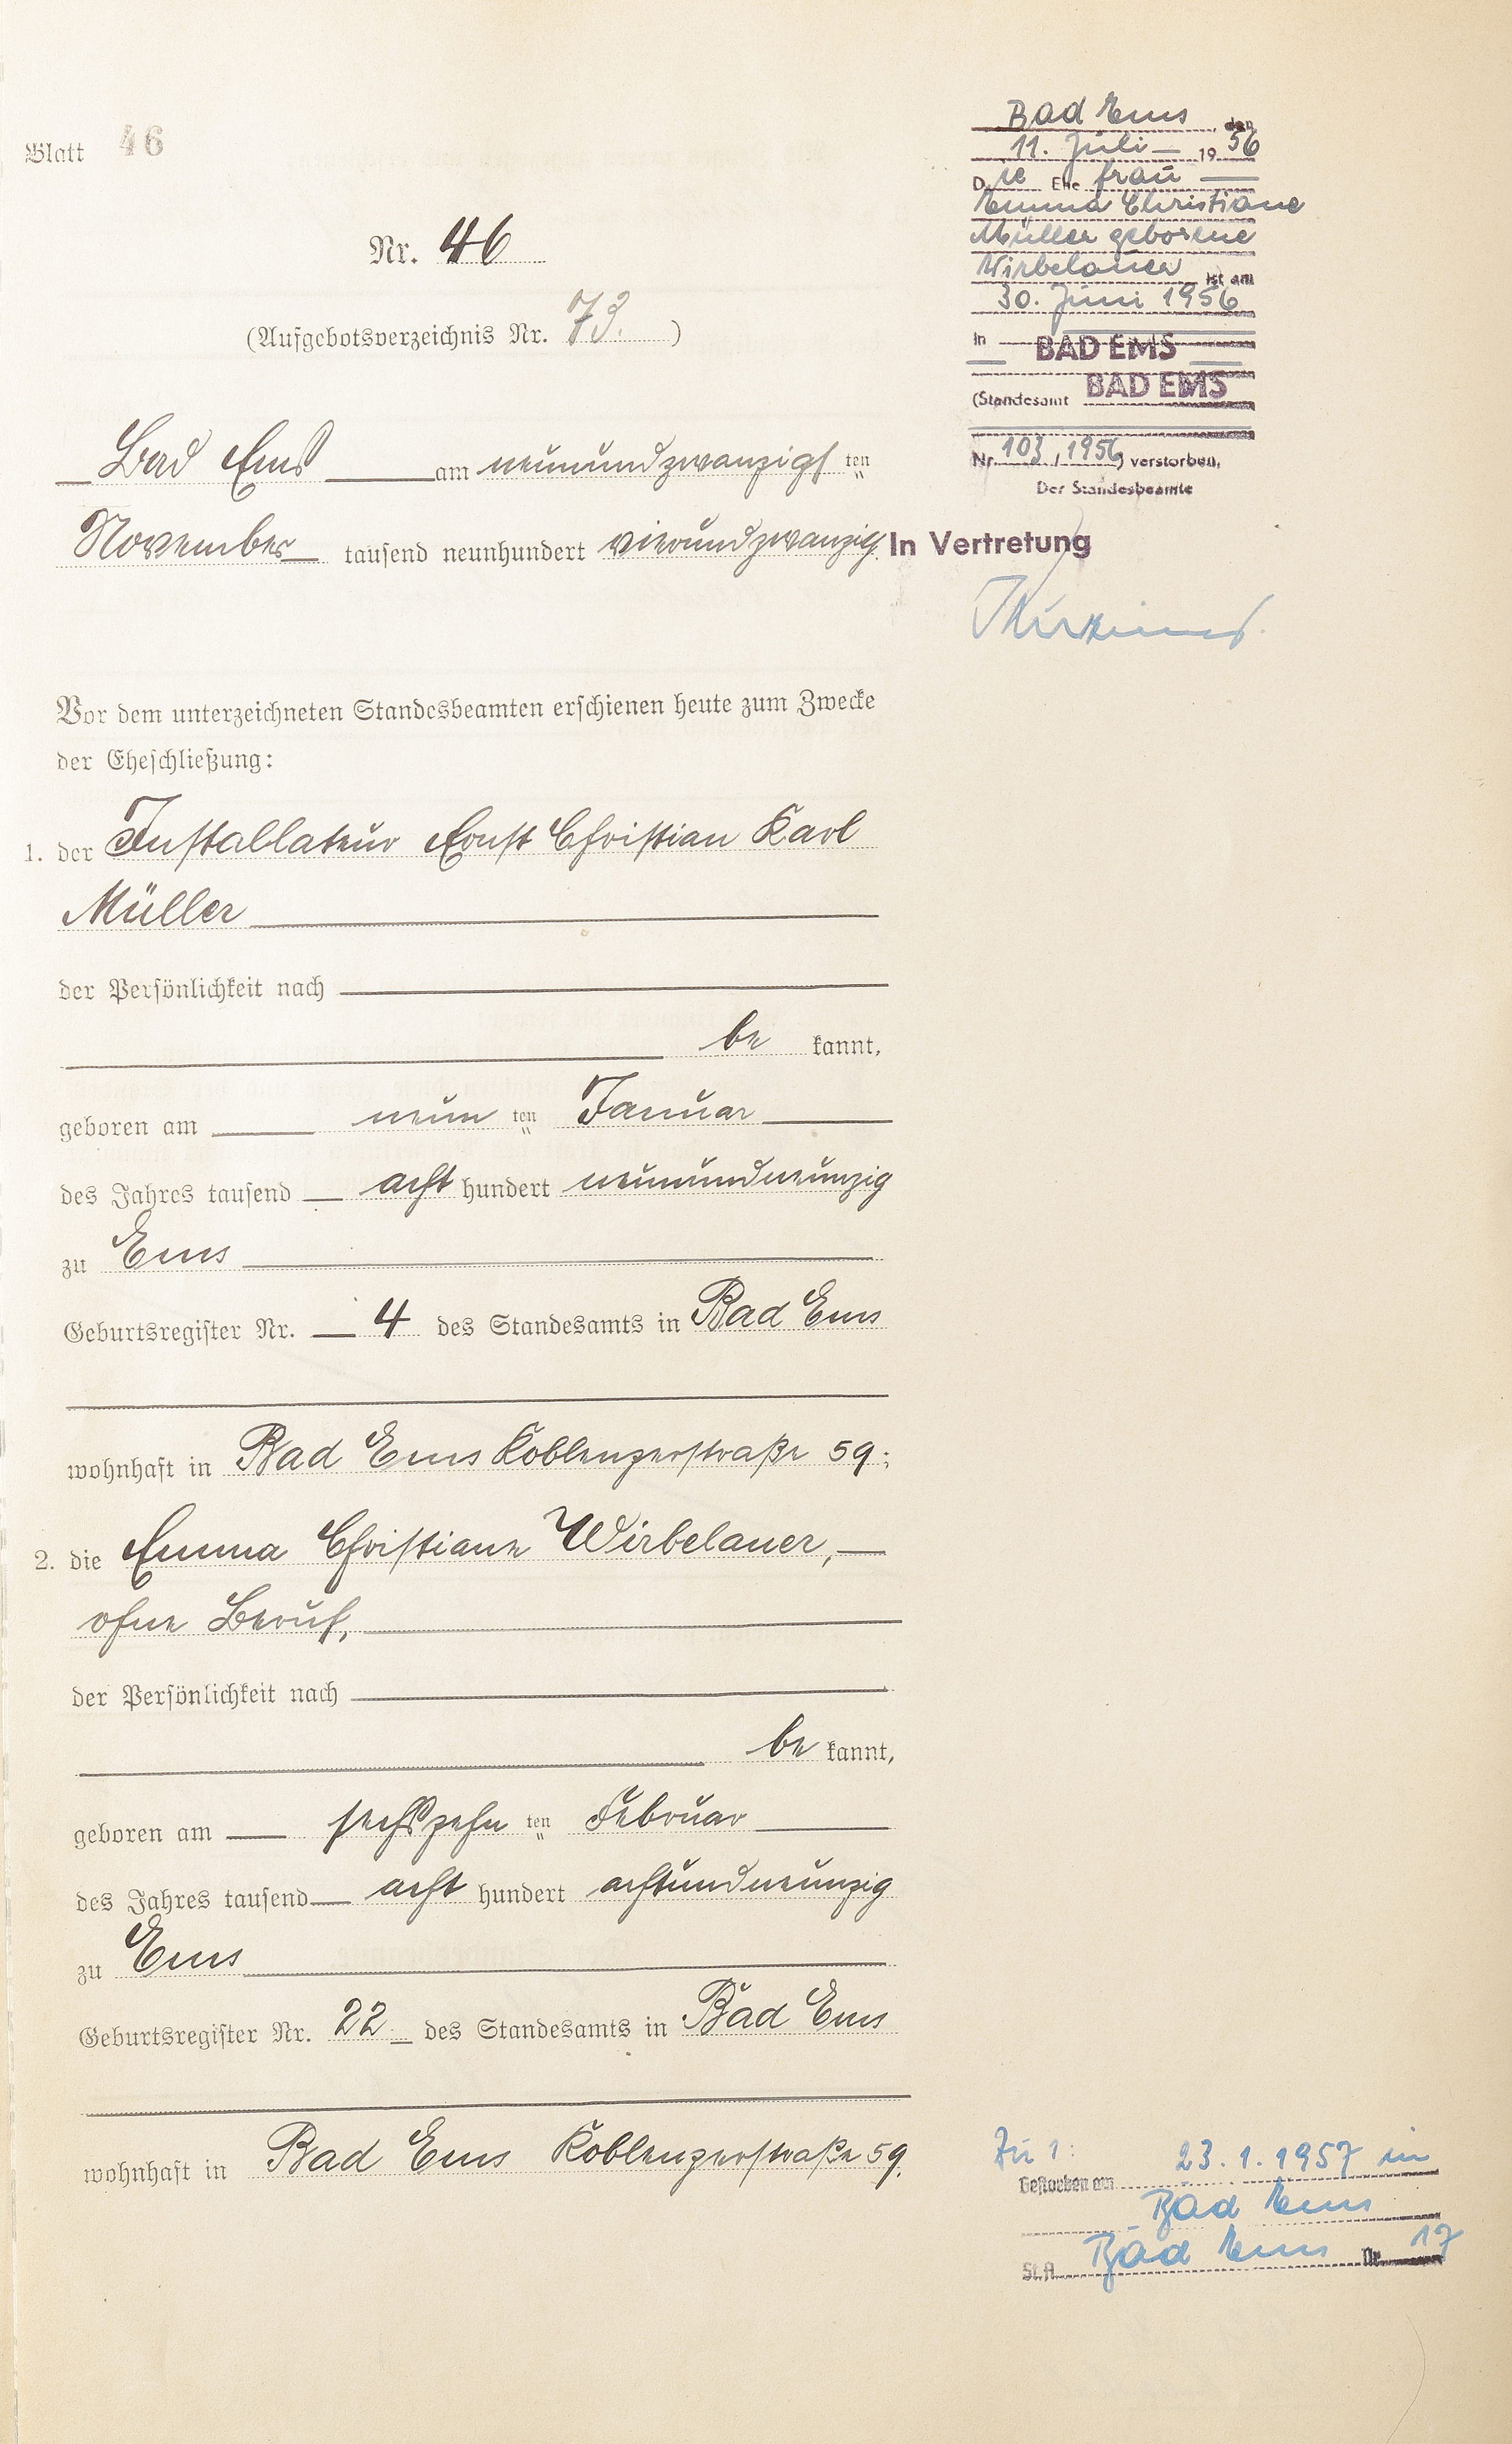 Blatt 46
Nr. 46
(Aufgebotsverzeichnis Nr. 73.)
Bad Ems am neunundzwanzigsten
November tausend neunhundert vierundzwanzig.
Vor dem unterzeichneten Standesbeamten erschienen heute zum Zwecke
der Eheschließung:
1. der Installateur Ernst Christian Karl
Müller
der Persönlichkeit nach
be kannt,
geboren am neun ten Januar
des Jahres tausend acht hundert neunundneunzig
zu Ems
Geburtsregister Nr. 4 des Standesamts in Bad Ems
wohnhaft in Bad Ems Koblenzerstraße 59;
2. die Emma Christiane Wirbelauer,
ohne Beruf,
der Persönlichkeit nach
be kannt,
geboren am sechszehn ten Februar
des Jahres tausend acht hundert achtundneunzig
zu Ems
Geburtsregister Nr. 22 des Standesamts in Bad Ems
wohnhaft in Bad Ems Koblenzerstraße 59.
Bad Ems, den
11. Juli 1956
Die Ehefrau
Emma Christiane
Müller geborene
Wirbelauer ist am
30. Juni 1956
in BAD EMS
(Standesamt BAD EMS
Nr. 103/1956) verstorben.
Der Standesbeamte
In Vertretung
Zu 1:
Gestorben am 23.1.1957 in
Bad Ems
St.A. Bad Ems Nr. 17